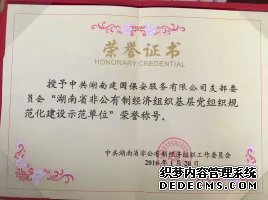 荣誉证书
HONORARY CREDENTIAL
授予中共湖南建国保安服务有限公司支部委
员会“湖南省非公有制经济组织基层党组织规
范化建设示范单位”荣誉称号。
中共湖南省非公有制经济组织工作委员会
2016年1月20日